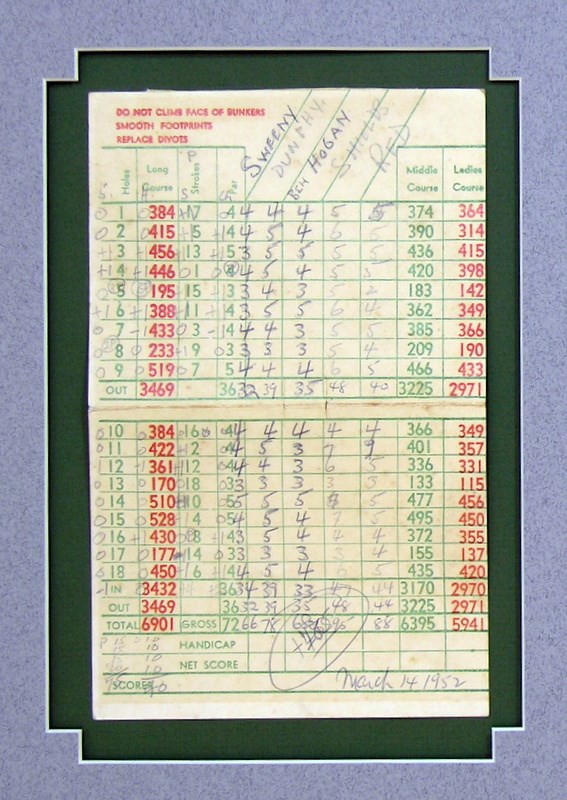 DO NOT CLIMB FACE OF BUNKERS
SMOOTH FOOTPRINTS
REPLACE DIVOTS
SWEENY DUNPHY. BEN HOGAN SHIELDS RED
Holes Long Course Strokes Par Middle Course Ladies Course
1 384 17 4 4 4 4 5 5 374 364
2 415 5 4 4 5 4 6 5 390 314
3 456 13 5 3 5 5 5 5 436 415
4 446 1 4 4 5 4 5 420 398
5 195 15 3 3 4 3 5 2 183 142
6 388 11 4 3 5 5 6 4 362 349
7 433 3 4 4 4 3 5 5 385 366
8 233 19 3 3 3 3 5 4 209 190
9 519 7 5 4 4 4 6 5 466 433
OUT 3469 36 32 39 35 48 40 3225 2971
10 384 16 4 4 4 4 4 4 366 349
11 422 2 4 4 5 3 7 9 401 357
12 361 12 4 4 4 3 6 5 336 331
13 170 18 3 3 3 3 3 3 133 115
14 510 10 5 5 5 5 5 477 456
15 528 4 5 4 5 4 7 5 495 450
16 430 8 4 3 5 4 4 4 372 355
17 177 14 3 3 3 3 3 4 155 137
18 450 6 4 4 5 4 6 5 435 420
IN 3432 36 34 39 33 47 44 3170 2970
OUT 3469 36 32 39 35 48 44 3225 2971
TOTAL 6901 GROSS 72 66 78 68 95 88 6395 5941
HANDICAP
NET SCORE
SCORER March 14 1952